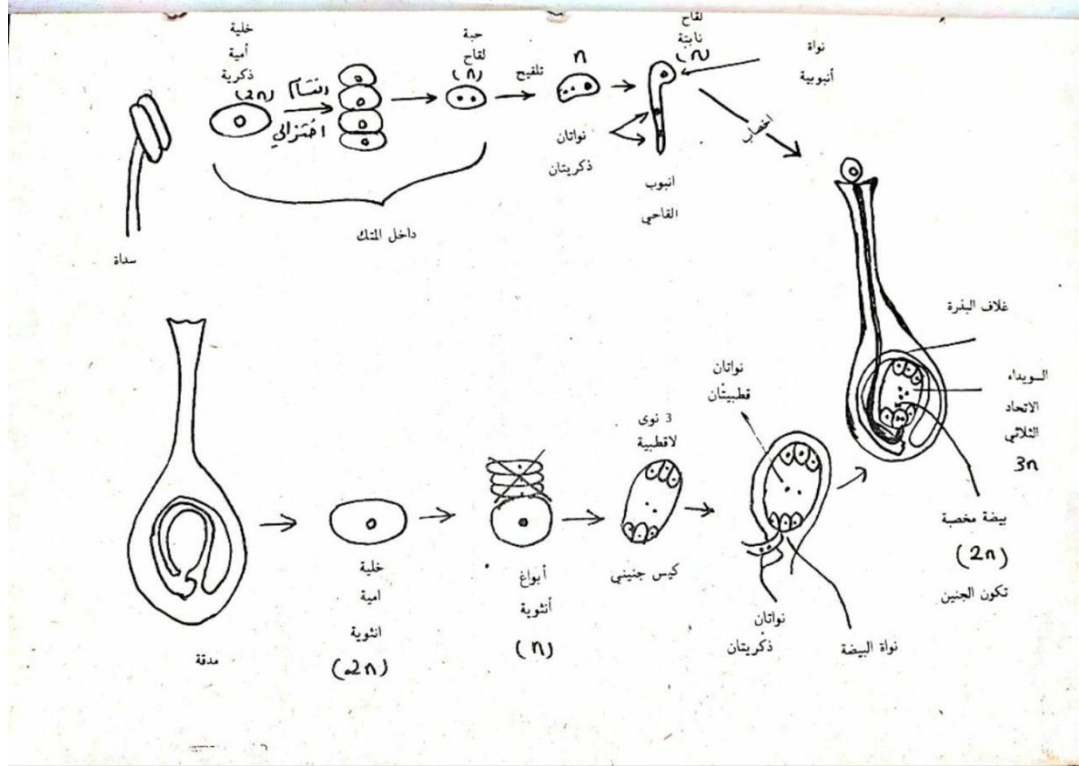 خلية
أمية
ذكرية
(2n)
انقسام
اختزالي
حبة
لقاح
(n)
تلقيح
n
لقاح
نابتة
(n)
نواة
أنبوبية
نواتان
ذكريتان
انبوب
القاحي
اخصاب
داخل المتك
سداة
غلاف البذرة
السويداء
الاتحاد
الثلاثي
3n
بيضة مخصبة
(2n)
تكون الجنين
نواتان
قطبيتان
3 نوى
لاقطبية
كيس جنيني
أبواغ
أنثوية
(n)
خلية
امية
انثوية
(2n)
مدقة
نواتان
ذكريتان
نواة البيضة